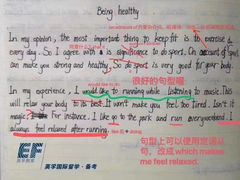 Being healthy
In my opinion, the most important thing to keep fit is to exercise
every day. So I agree with a significance to do sport. On account of gym
can keep us strong and healthy. So do sport is very good for your body.
would like to do
很好的句型喔
In my experience, I would like to running while listening to music. This
will relax your body to its best. It won't make you feel too tired. Isn't it
magic? For instance, I like to go to the park and run everyweekend. I
always feel relaxed after running.
like 后 + doing
句型上可以使用定语从
句,改成which makes
me feel relaxed.
EF
英孚国际留学·备考